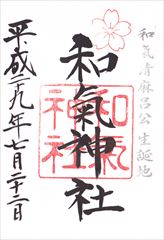 和氣清麻呂公生誕地
和氣神社
和氣神社
平成二十九年七月二十二日